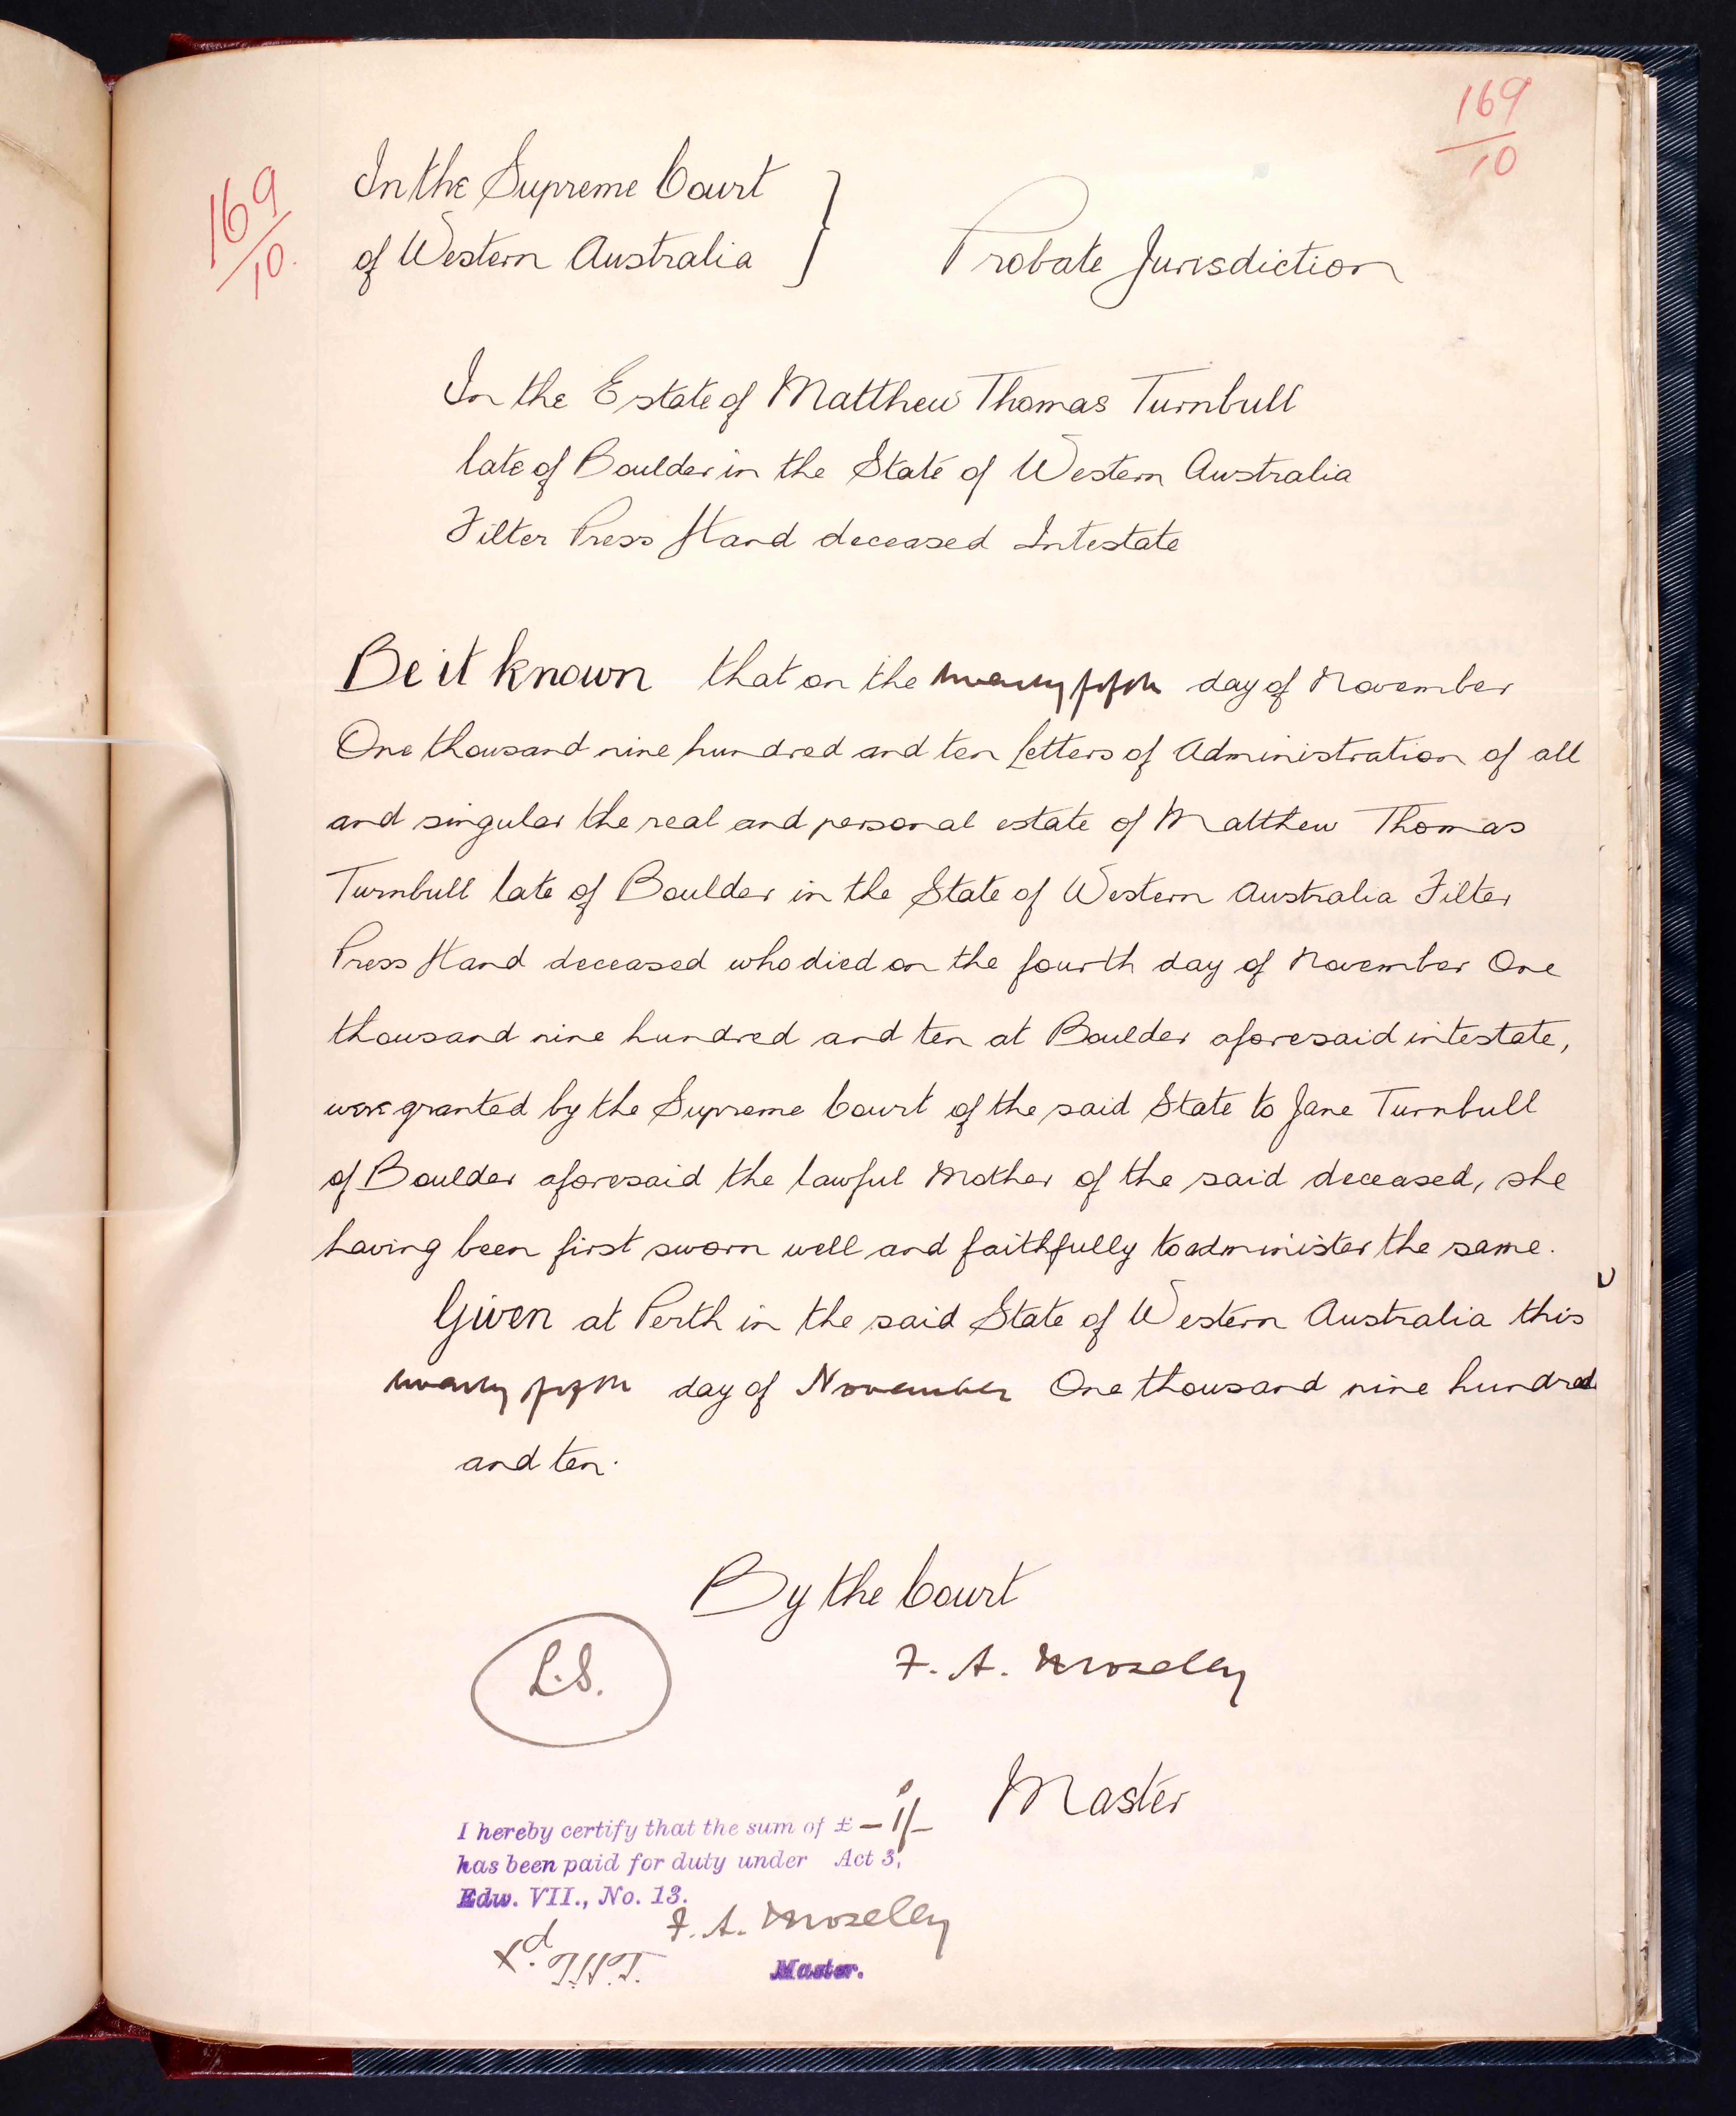 169
10
169
10.
In the Supreme Court
of Western Australia
Probate Jurisdiction
In the Estate of Matthew Thomas Turnbull
late of Boulder in the State of Western Australia
Filter Press Hand deceased Intestate
Be it known that on the twenty fifth day of November
One thousand nine hundred and ten Letters of Administration of all
and singular the real and personal estate of Matthew Thomas
Turnbull late of Boulder in the State of Western Australia Filter
Press Hand deceased who died on the fourth day of November One
thousand nine hundred and ten at Boulder aforesaid intestate,
were granted by the Supreme Court of the said State to Jane Turnbull
of Boulder aforesaid the lawful Mother of the said deceased, she
having been first sworn well and faithfully to administer the same.
Given at Perth in the said State of Western Australia this
twenty fifth day of November One thousand nine hundred
and ten.
By the Court
L.S.
F. A. Moseley
Master
I hereby certify that the sum of £ – 1/–
has been paid for duty under Act 3,
Edw. VII., No. 13.
F. A. Moseley
Master.